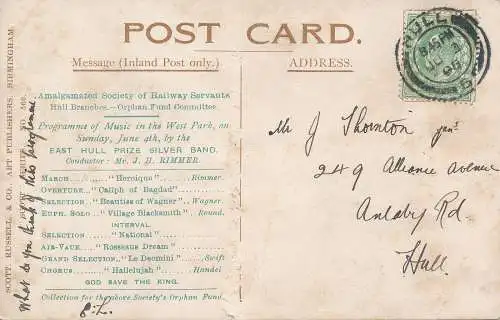 POST CARD.
Message (Inland Post only.)
ADDRESS.
Amalgamated Society of Railway Servants
Hull Branches—Orphan Fund Committee.
Programme of Music in the West Park, on
Sunday, June 4th, by the
EAST HULL PRIZE SILVER BAND.
Conductor: Mr. J. H. RIMMER.
MARCH......... "Heroique" ......... Rimmer.
OVERTURE... "Caliph of Bagdad" .........
SELECTION... "Beauties of Wagner" ... Wagner
EUPH. SOLO... "Village Blacksmith" ... Round.
INTERVAL
SELECTION ......... "National" .........
AIR-VAUX ... "Rosseaus Dream" .........
GRAND SELECTION... "Le Deomini" ... Swift
CHORUS......... "Hallelujah" ...... Handel
GOD SAVE THE KING.
Collection for the above Society's Orphan Fund
E.L.
What do you think of this programme.
SCOTT, RUSSELL, & CO. ART PUBLISHERS, BIRMINGHAM.
HULL
8.15 PM
JU
Mr J Thornton junr
249 Alliance Avenue
Anlaby Rd.
Hull.